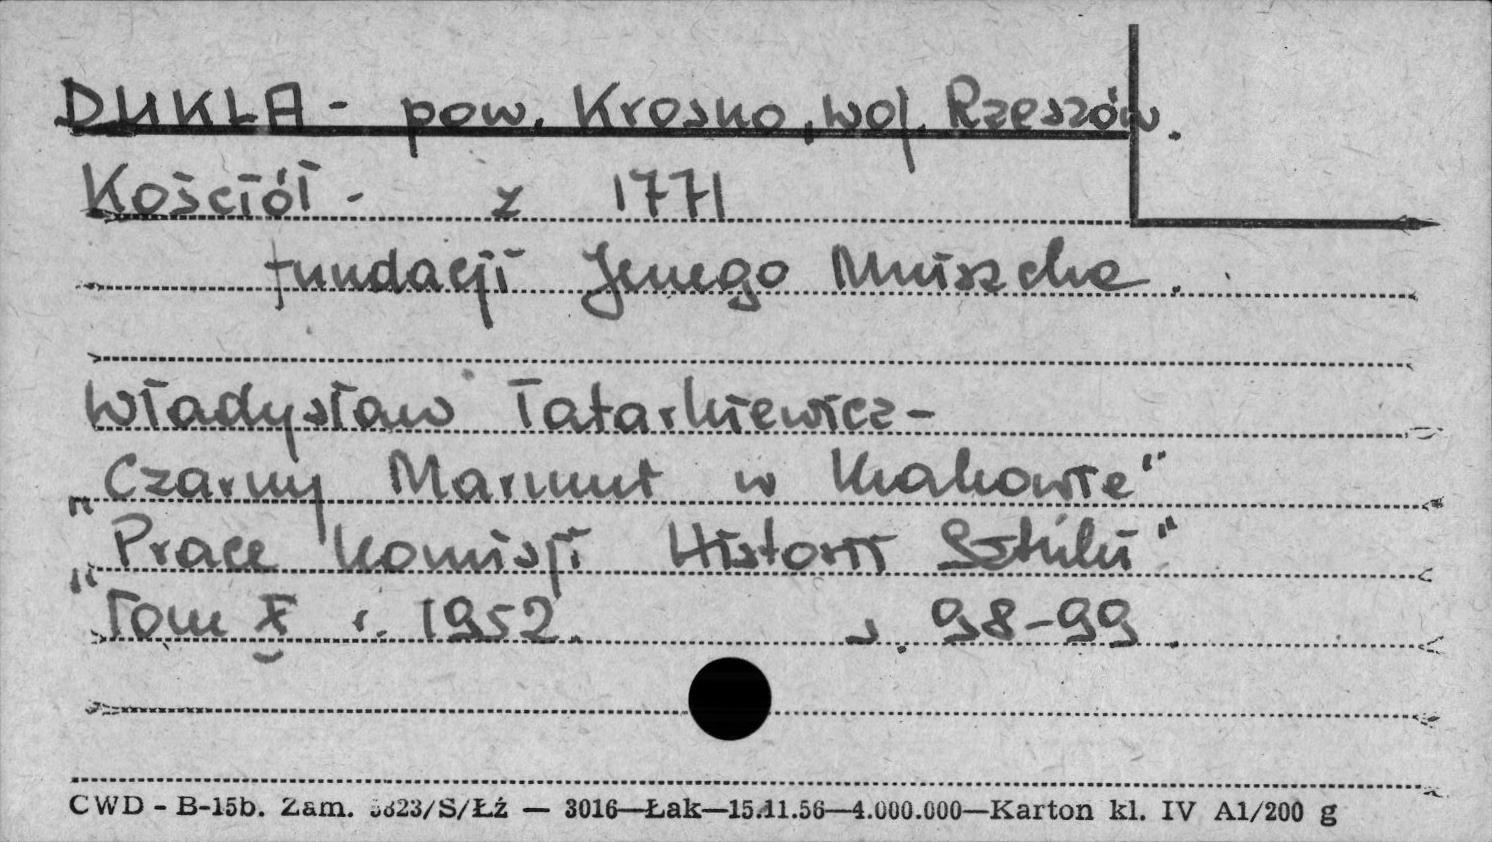 DUKLA - pow. Krosno, woj. Rzeszów.
Kościół - z 1771
fundacji Jerzego Mniszcha.
Władysław Tatarkiewicz -
„Czarny Marmur w Krakowie"
„Prace Komisji Historii Sztuki"
Tom X r. 1952. s. 98-99.
CWD - B-15b. Zam. 5823/S/Łź — 3016—Łak—15.11.56—4.000.000—Karton kl. IV A1/200 g